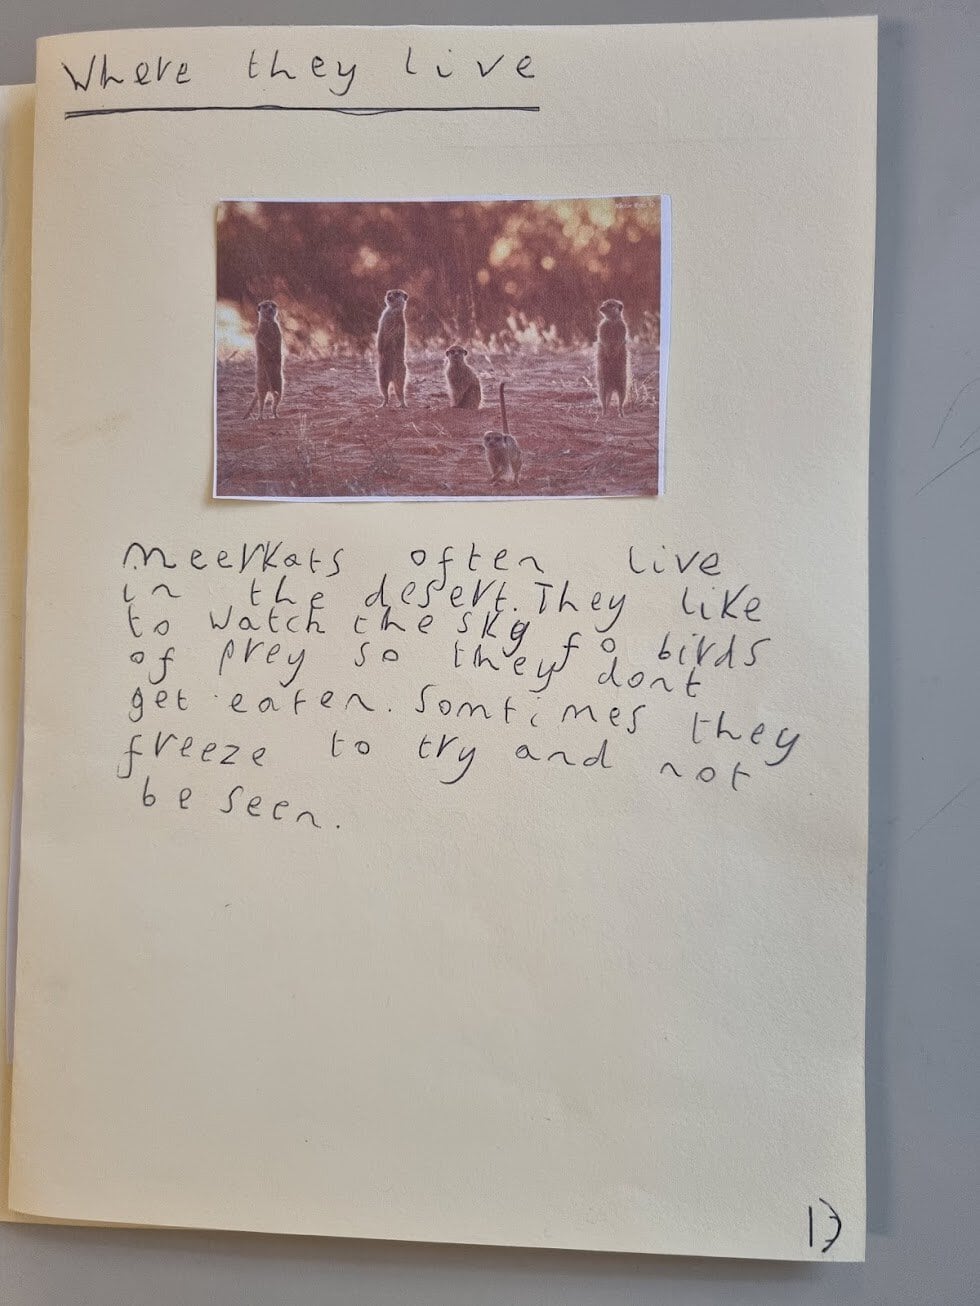 Where they live
meerkats often live
in the desert. They like
to watch the sky fo birds
of prey so they dont
get eaten. Somtimes they
freeze to try and not
be seen.